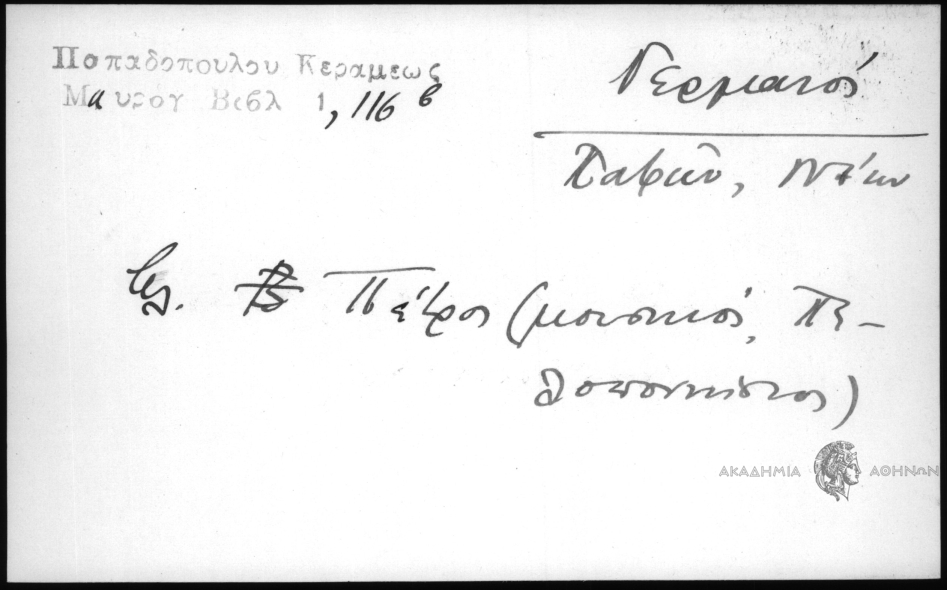 Παπαδοπουλου Κεραμεως
Μαυρογ Βιβλ 1, 116 β
Γερμανός
Παφίου, Νέων
βλ. Πέτρος (μουσικός, Πε-
λοποννήσιος)
ΑΚΑΔΗΜΙΑ ΑΘΗΝΩΝ